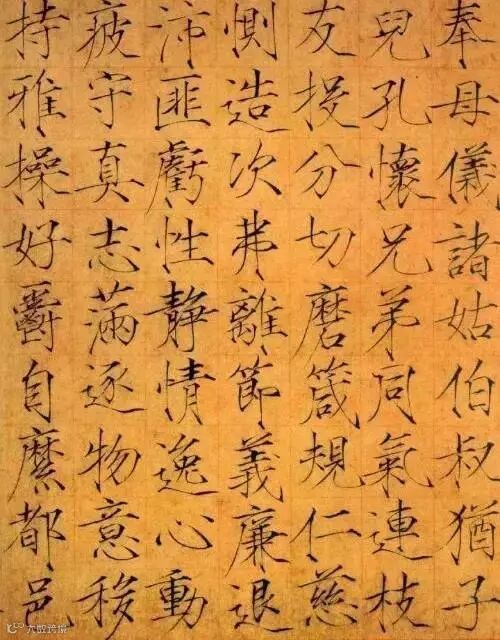 奉母儀諸姑伯叔猶子
兒孔懷兄弟同氣連枝
友投分切磨箴規仁慈
惻造次弗離節義廉退
沛匪虧性靜情逸心動
疲守真志滿逐物意移
持雅操好爵自縻都邑
大数跨境